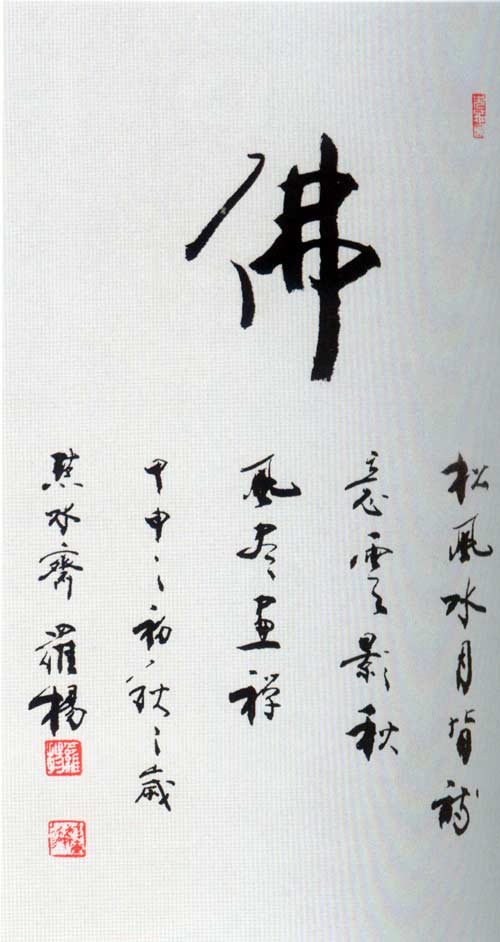 佛
松風水月皆詩
意雲影秋
風尽画禅
甲申之初秋之歲
水齋羅楊